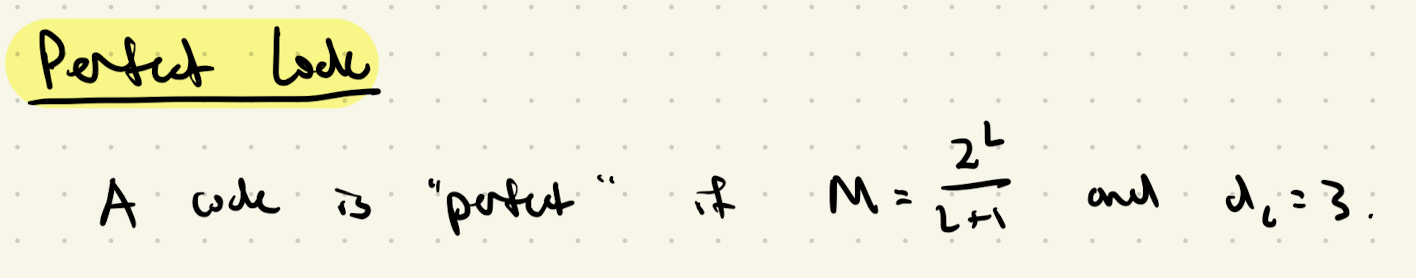 Perfect Code
A code is "perfect" if M = 2^L / (L+1) and d_c = 3.